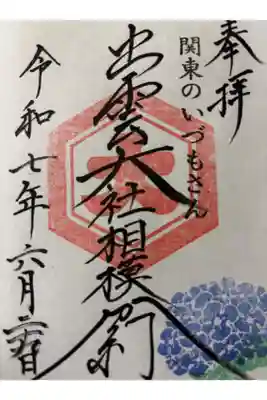 奉拝
関東のいづもさん
出雲大社相模分祠
令和七年六月